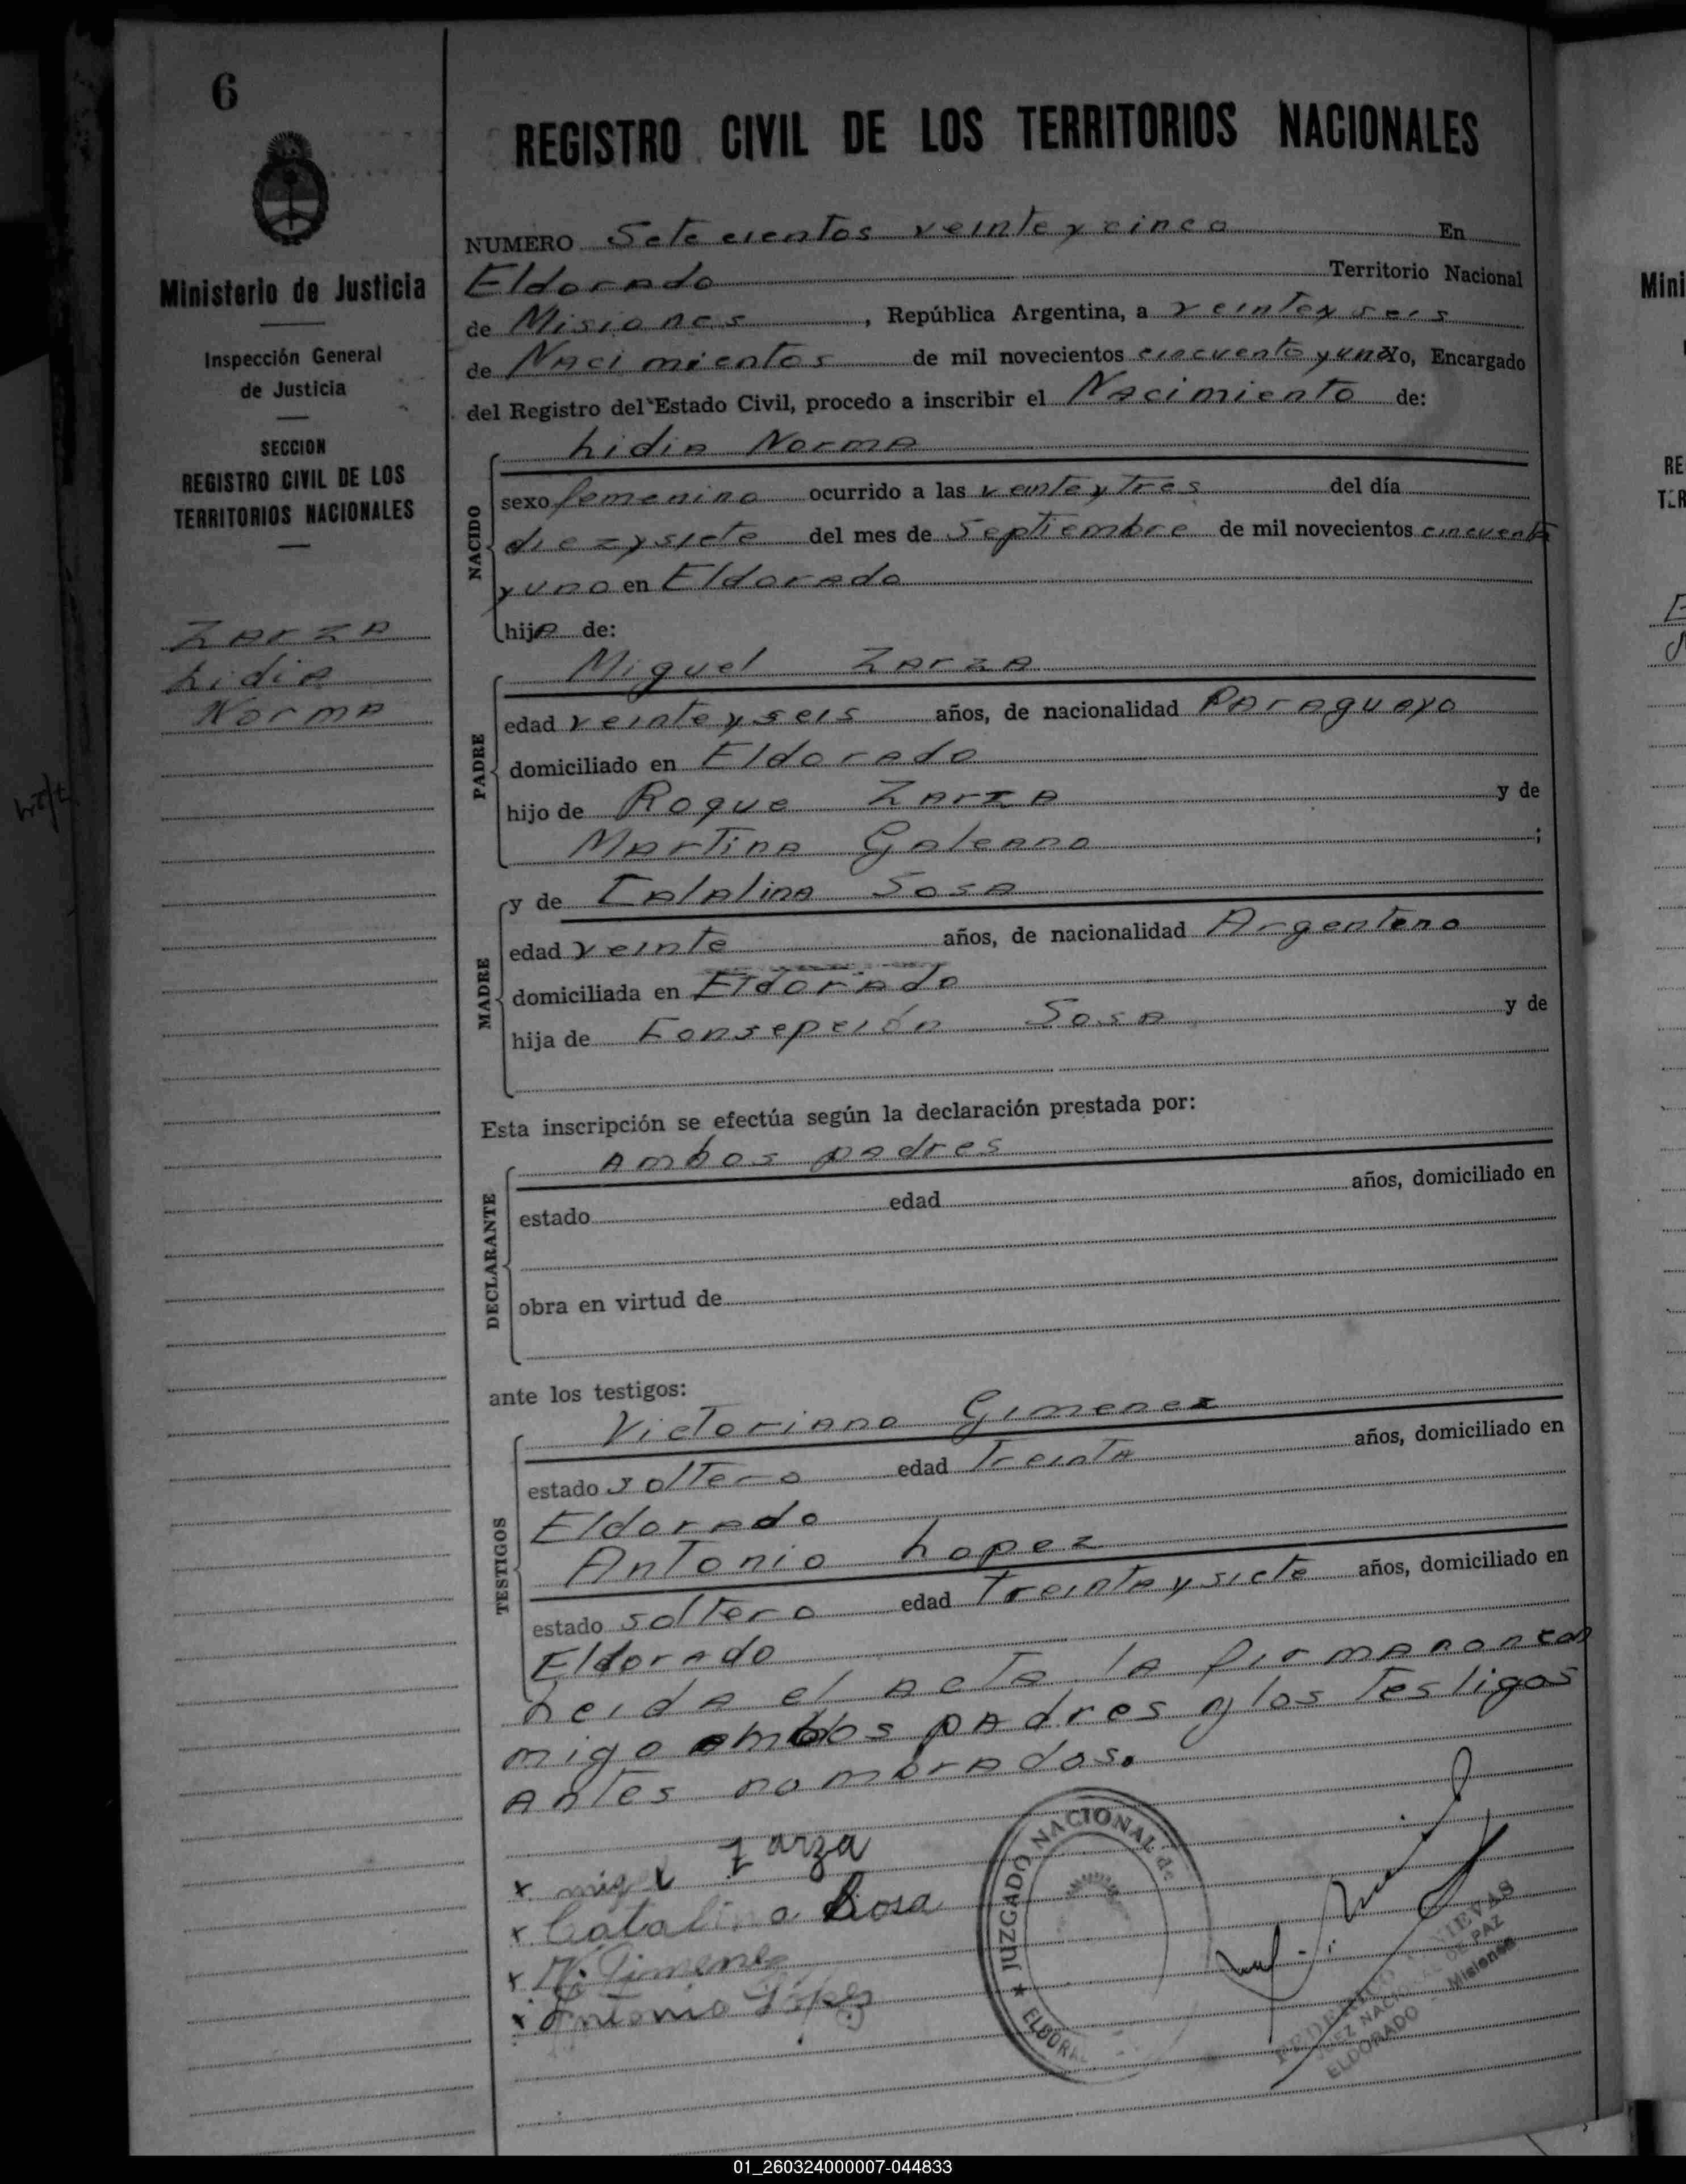 6
REGISTRO CIVIL DE LOS TERRITORIOS NACIONALES
Ministerio de Justicia
Inspección General
de Justicia
SECCION
REGISTRO CIVIL DE LOS
TERRITORIOS NACIONALES
Zarza
Lidia
Norma
NUMERO Setecientos veinte y cinco En
Eldorado Territorio Nacional
de Misiones, República Argentina, a veinte y seis
de Nacimientos de mil novecientos cincuenta y uno Yo, Encargado
del Registro del Estado Civil, procedo a inscribir el Nacimiento de:
NACIDO
Lidia Norma
sexo femenino ocurrido a las veinte y tres del día
diez y siete del mes de Septiembre de mil novecientos cincuenta
y uno en Eldorado
hija de:
PADRE
Miguel Zarza
edad veinte y seis años, de nacionalidad Paraguayo
domiciliado en Eldorado
hijo de Roque Zarza y de
Martina Galeano;
MADRE
y de Catalina Sosa
edad veinte años, de nacionalidad Argentino
domiciliada en Eldorado
hija de Consepción Sosa y de
Esta inscripción se efectúa según la declaración prestada por:
DECLARANTE
Ambos padres
estado edad años, domiciliado en
obra en virtud de
ante los testigos:
TESTIGOS
Victoriano Gimenez
estado soltero edad Treinta años, domiciliado en
Eldorado
Antonio Lopez
estado soltero edad Treinta y siete años, domiciliado en
Eldorado
Leida el acta, la firmaron con
migo ambos padres y los Testigos
Antes nombrados.
x migel Zarza
x Catalina Sosa
x V. Gimenez
x Antonio López
JUZGADO NACIONAL de
ELDORA
NIEVAS
JUEZ NACIONAL DE PAZ
ELDORADO - Misiones
Mini
RE
01_260324000007-044833